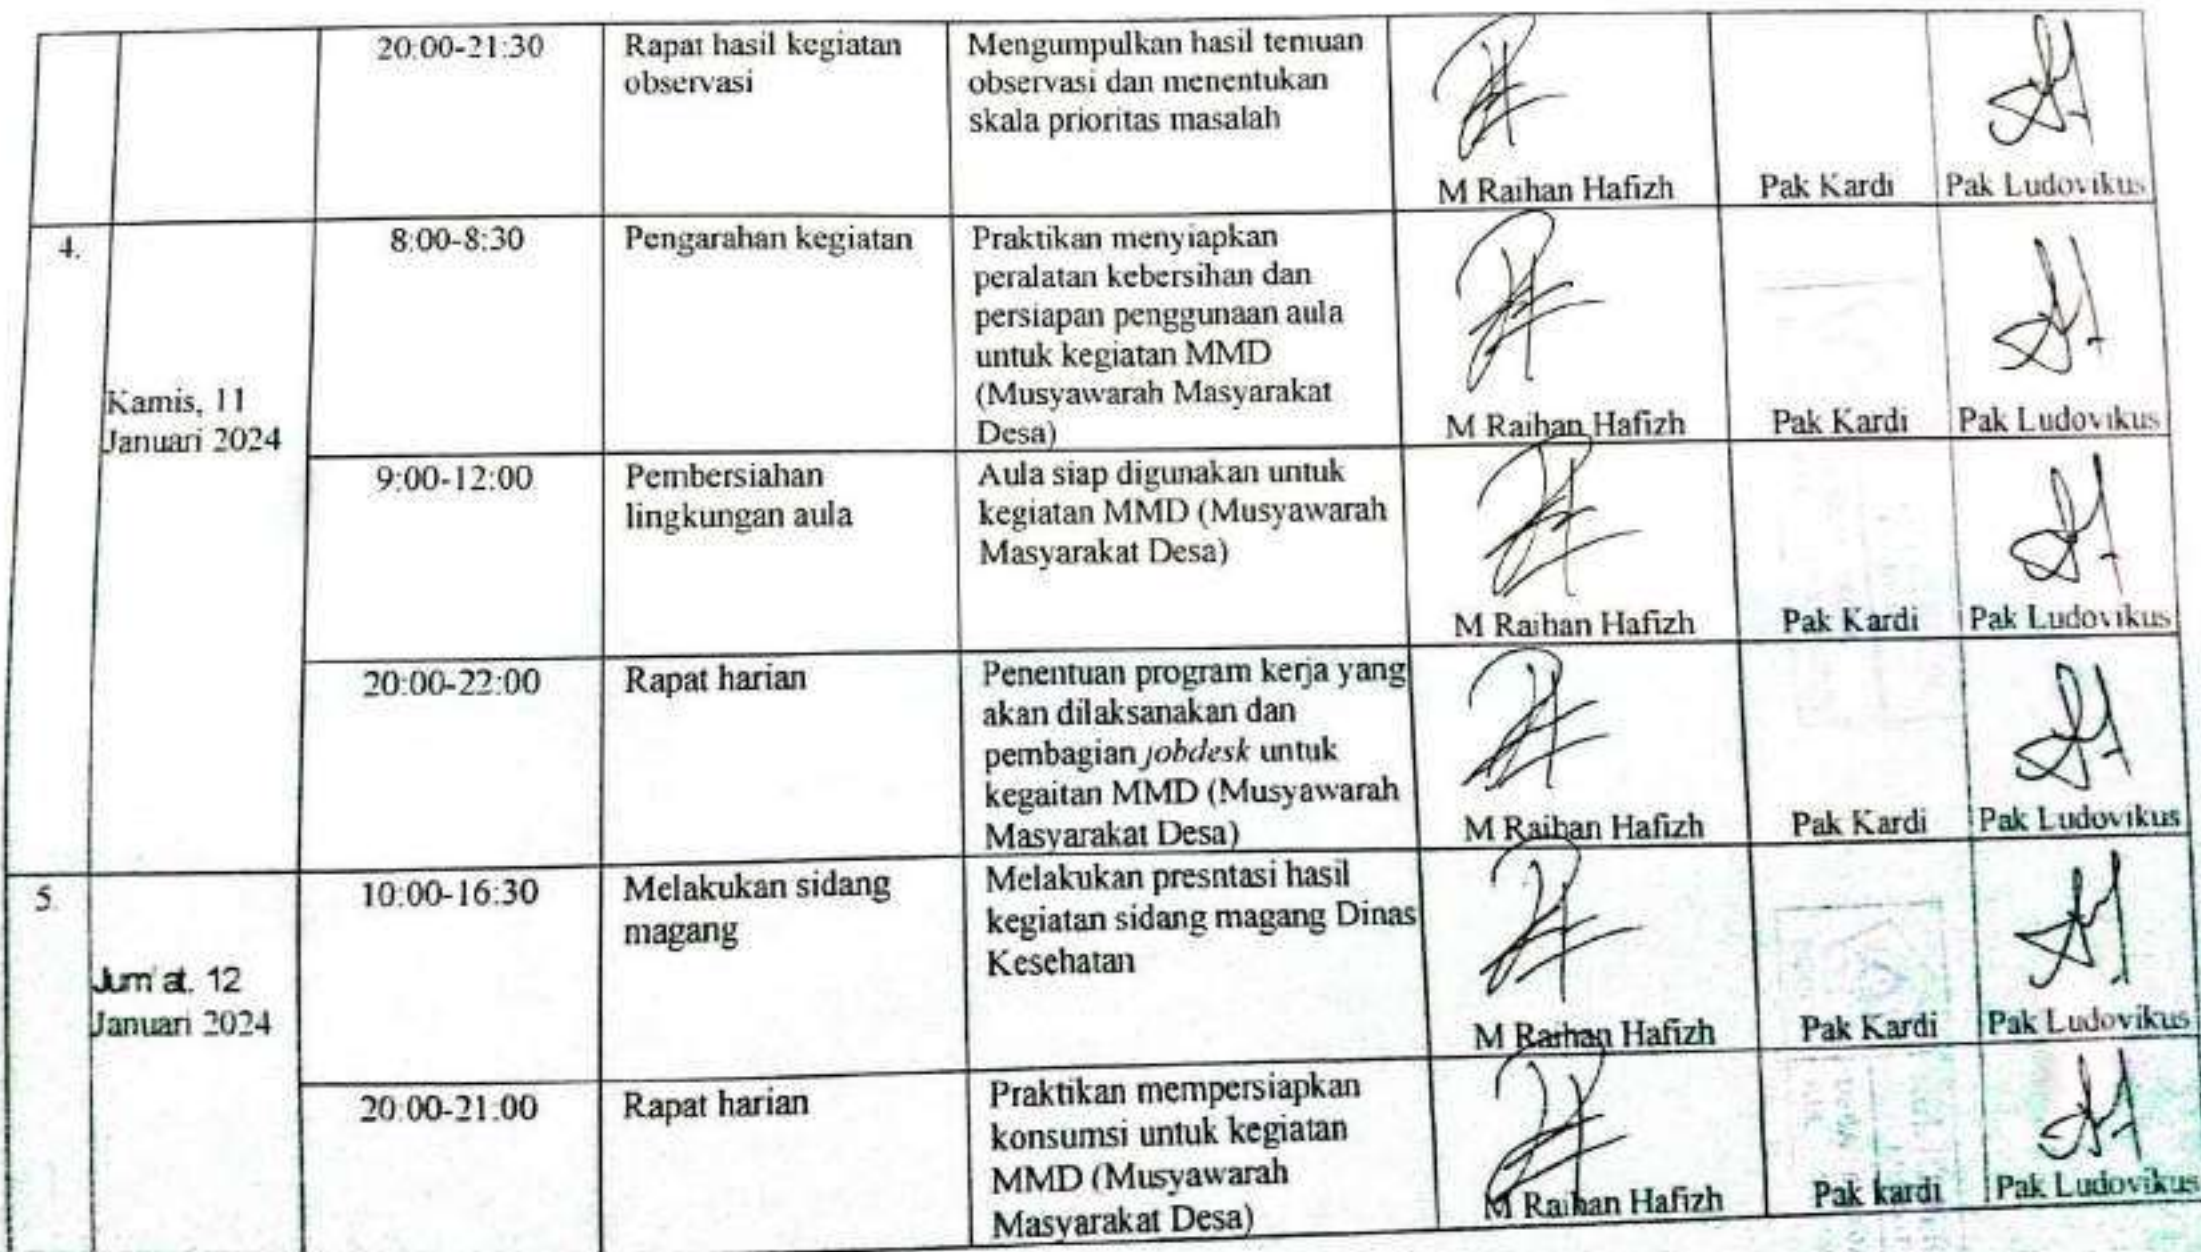 20:00-21:30
Rapat hasil kegiatan
observasi
Mengumpulkan hasil temuan
observasi dan menentukan
skala prioritas masalah
M Raihan Hafizh
Pak Kardi
Pak Ludovikus
4.
Kamis, 11
Januari 2024
8:00-8:30
Pengarahan kegiatan
Praktikan menyiapkan
peralatan kebersihan dan
persiapan penggunaan aula
untuk kegiatan MMD
(Musyawarah Masyarakat
Desa)
M Raihan Hafizh
Pak Kardi
Pak Ludovikus
9:00-12:00
Pembersiahan
lingkungan aula
Aula siap digunakan untuk
kegiatan MMD (Musyawarah
Masyarakat Desa)
M Raihan Hafizh
Pak Kardi
Pak Ludovikus
20:00-22:00
Rapat harian
Penentuan program kerja yang
akan dilaksanakan dan
pembagian jobdesk untuk
kegaitan MMD (Musyawarah
Masyarakat Desa)
M Raihan Hafizh
Pak Kardi
Pak Ludovikus
5.
Jum'at. 12
Januari 2024
10:00-16:30
Melakukan sidang
magang
Melakukan presntasi hasil
kegiatan sidang magang Dinas
Kesehatan
M Raihan Hafizh
Pak Kardi
Pak Ludovikus
20:00-21:00
Rapat harian
Praktikan mempersiapkan
konsumsi untuk kegiatan
MMD (Musyawarah
Masyarakat Desa)
M Raihan Hafizh
Pak kardi
Pak Ludovikus